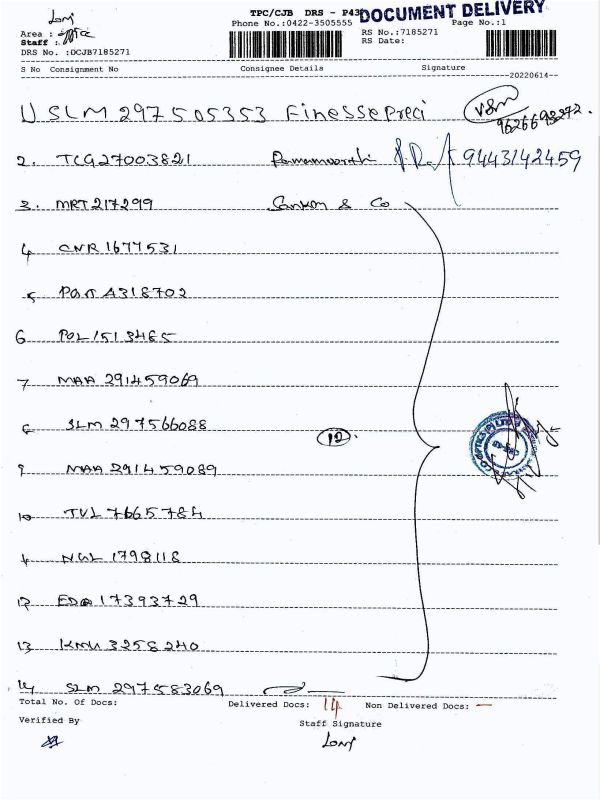 TPC/CJB DRS - P43
DOCUMENT DELIVERY
Phone No.:0422-3505555
Page No.:1
Area :
Staff :
DRS No. :DCJB7185271
RS No.:7185271
RS Date:
S No Consignment No Consignee Details Signature
20220614
1) SLM 297505353 Finesse Preci VSM
9626693272.
2. TCG27003821 9443142459
3. MRT 217299 Sankar & Co
4 CNR 1677531
5 A318702
6 POL 1513465
7 MAA 291459069
8 SLM 297566088
12.
9 MAA 291459089
10 TVL 7665784
NGL 1798118
12 EDA 17393729
13 KMU 3258240
14 SLM 297583069
Total No. Of Docs: Delivered Docs: 14 Non Delivered Docs: —
Verified By Staff Signature